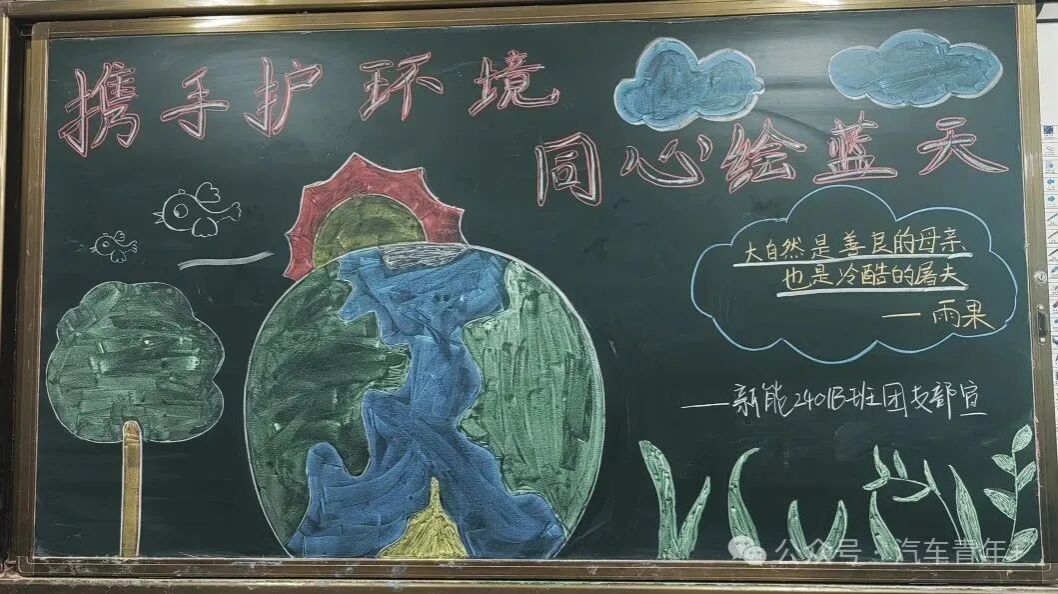 携手护环境
同心绘蓝天
大自然是善良的母亲、
也是冷酷的屠夫
—雨果
—新能2401B班团支部宣
公众号·汽车青年